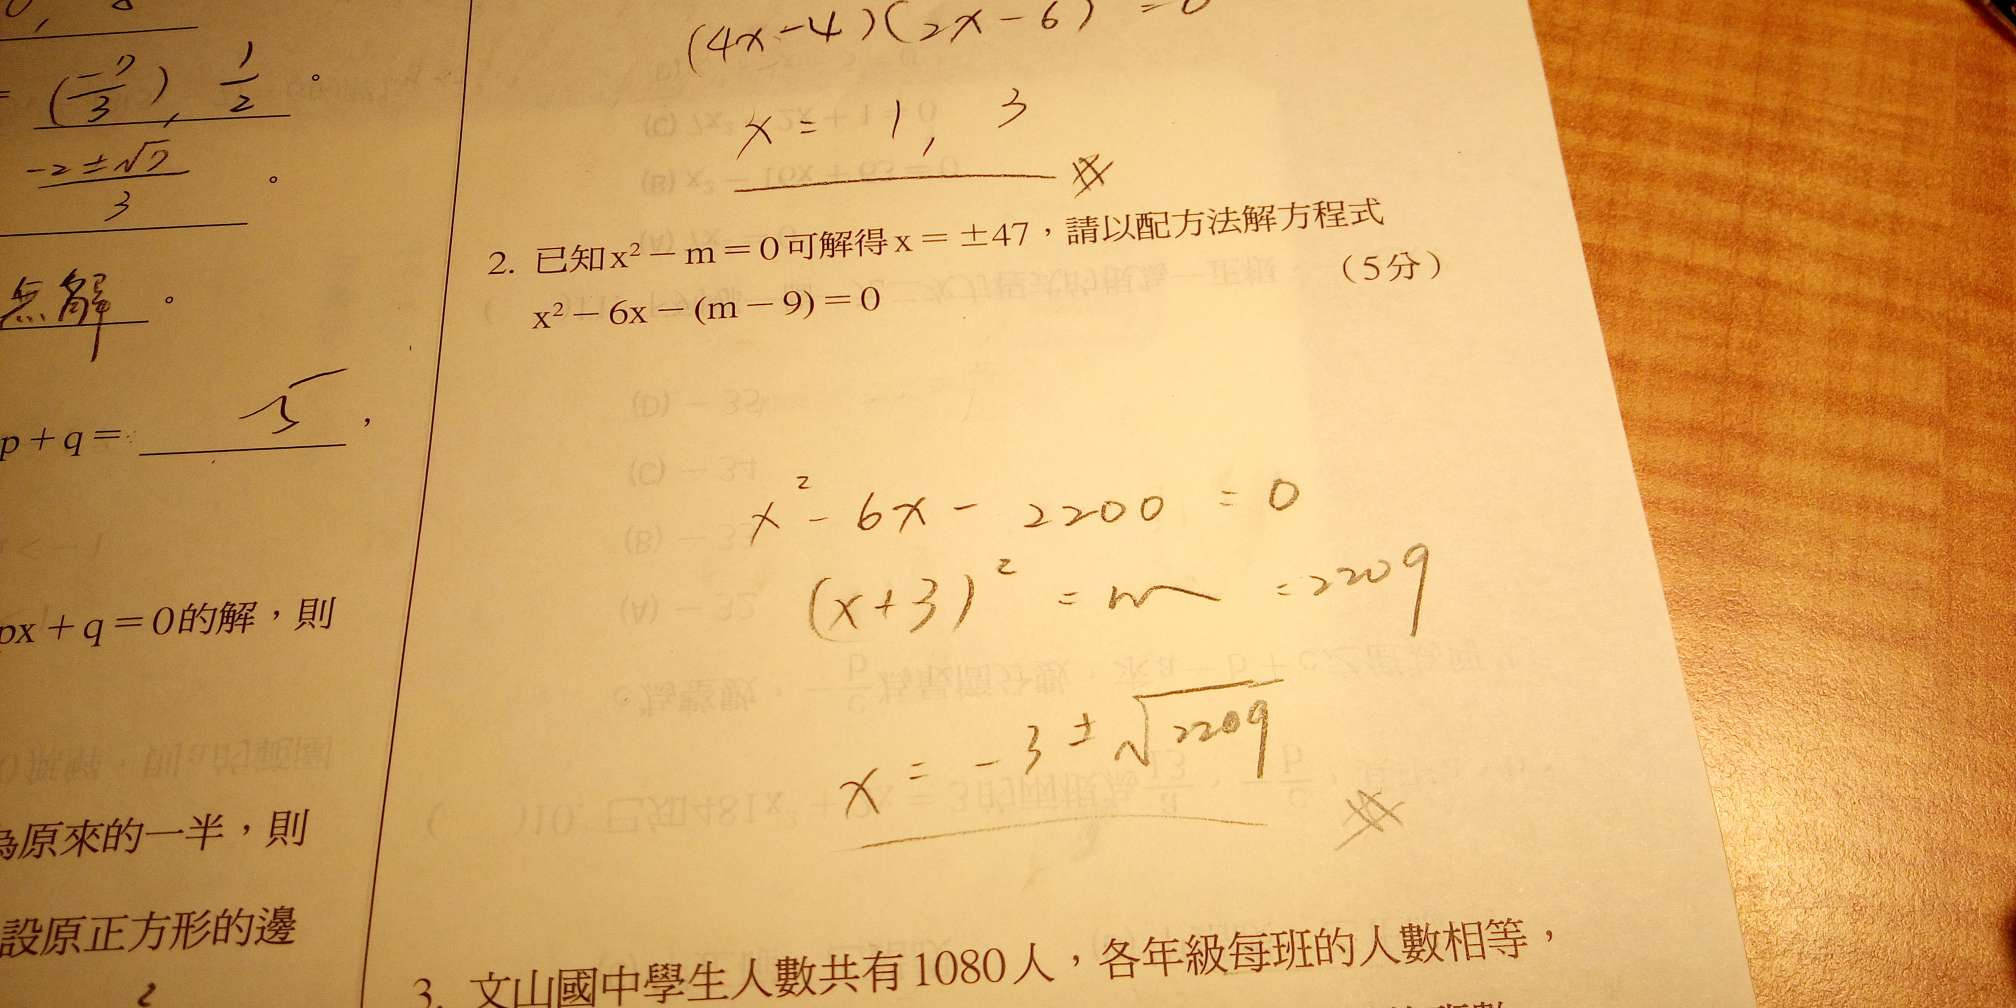 = (-7/3), 1/2 。
-2±√7/3 。
無解 。
p+q= 5 ,
px+q=0的解,則
為原來的一半,則
設原正方形的邊
(4x-4)(2x-6) =0
x = 1, 3
2. 已知x²-m=0可解得x=±47,請以配方法解方程式
x²-6x-(m-9)=0 (5分)
x²-6x-2200=0
(x+3)²=m=2209
x=-3±√2209
3. 文山國中學生人數共有1080人,各年級每班的人數相等,